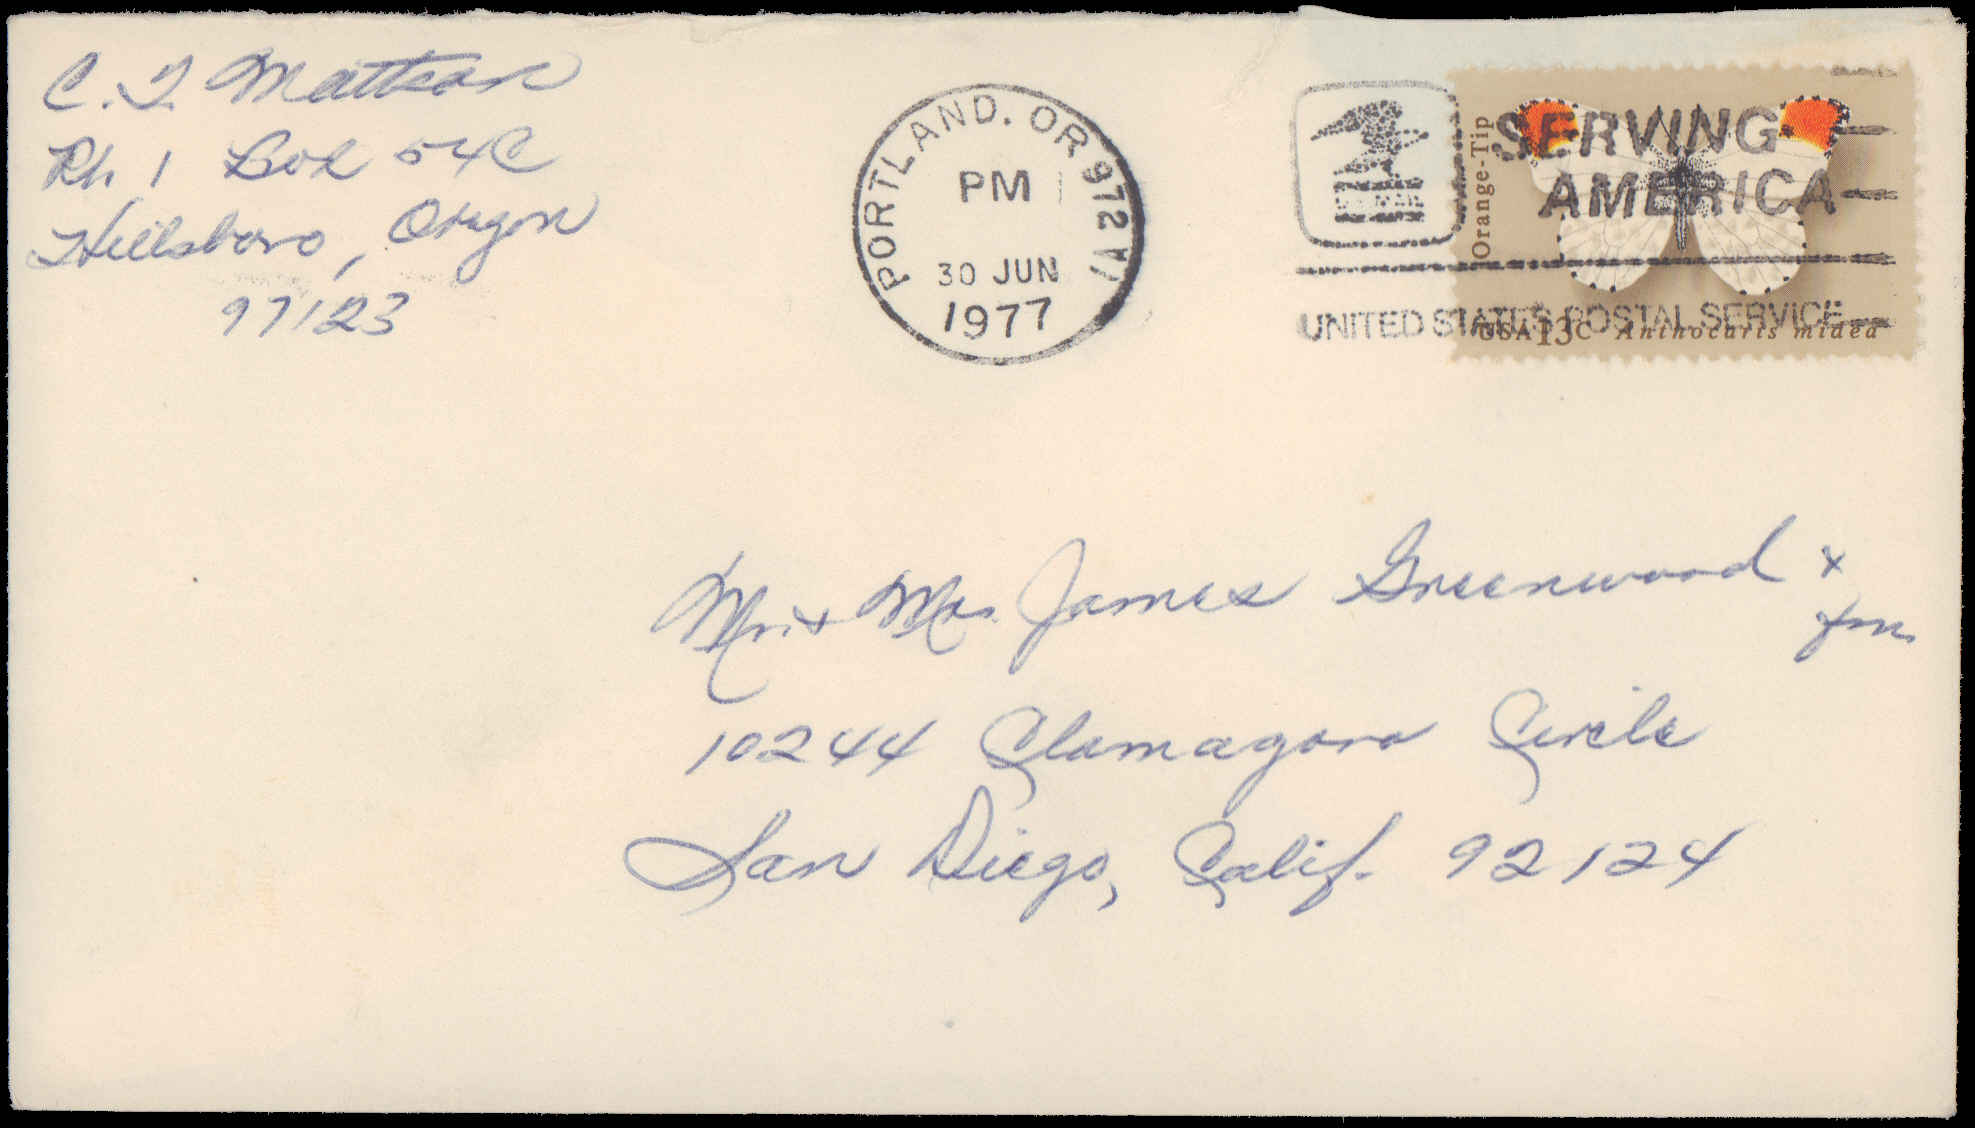 C. T. Mattson
Rt. 1 Box 54C
Hillsboro, Oregon
97123
PORTLAND. OR 972
PM
30 JUN
1977
SERVING
AMERICA
U.S. MAIL
UNITED STATES POSTAL SERVICE
Orange-Tip
USA 13c Anthocaris midea
Mr. + Mrs. James Greenwood +
fam.
10244 Clamagoro Circle
San Diego, Calif. 92124